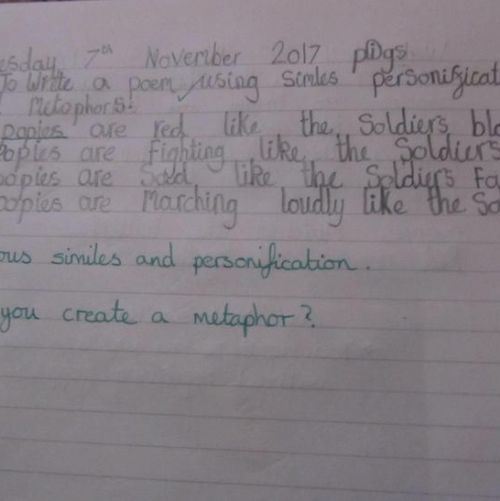 esday 7th November 2017 pigs
To Write a poem using similes personificat
Metaphors.
popies are red like the Soldiers blo
opies are Fighting like the Soldiers
opies are Sad like the Soldiers Fa
opies are Marching loudly like the So
ous similes and personification.
you create a metaphor?